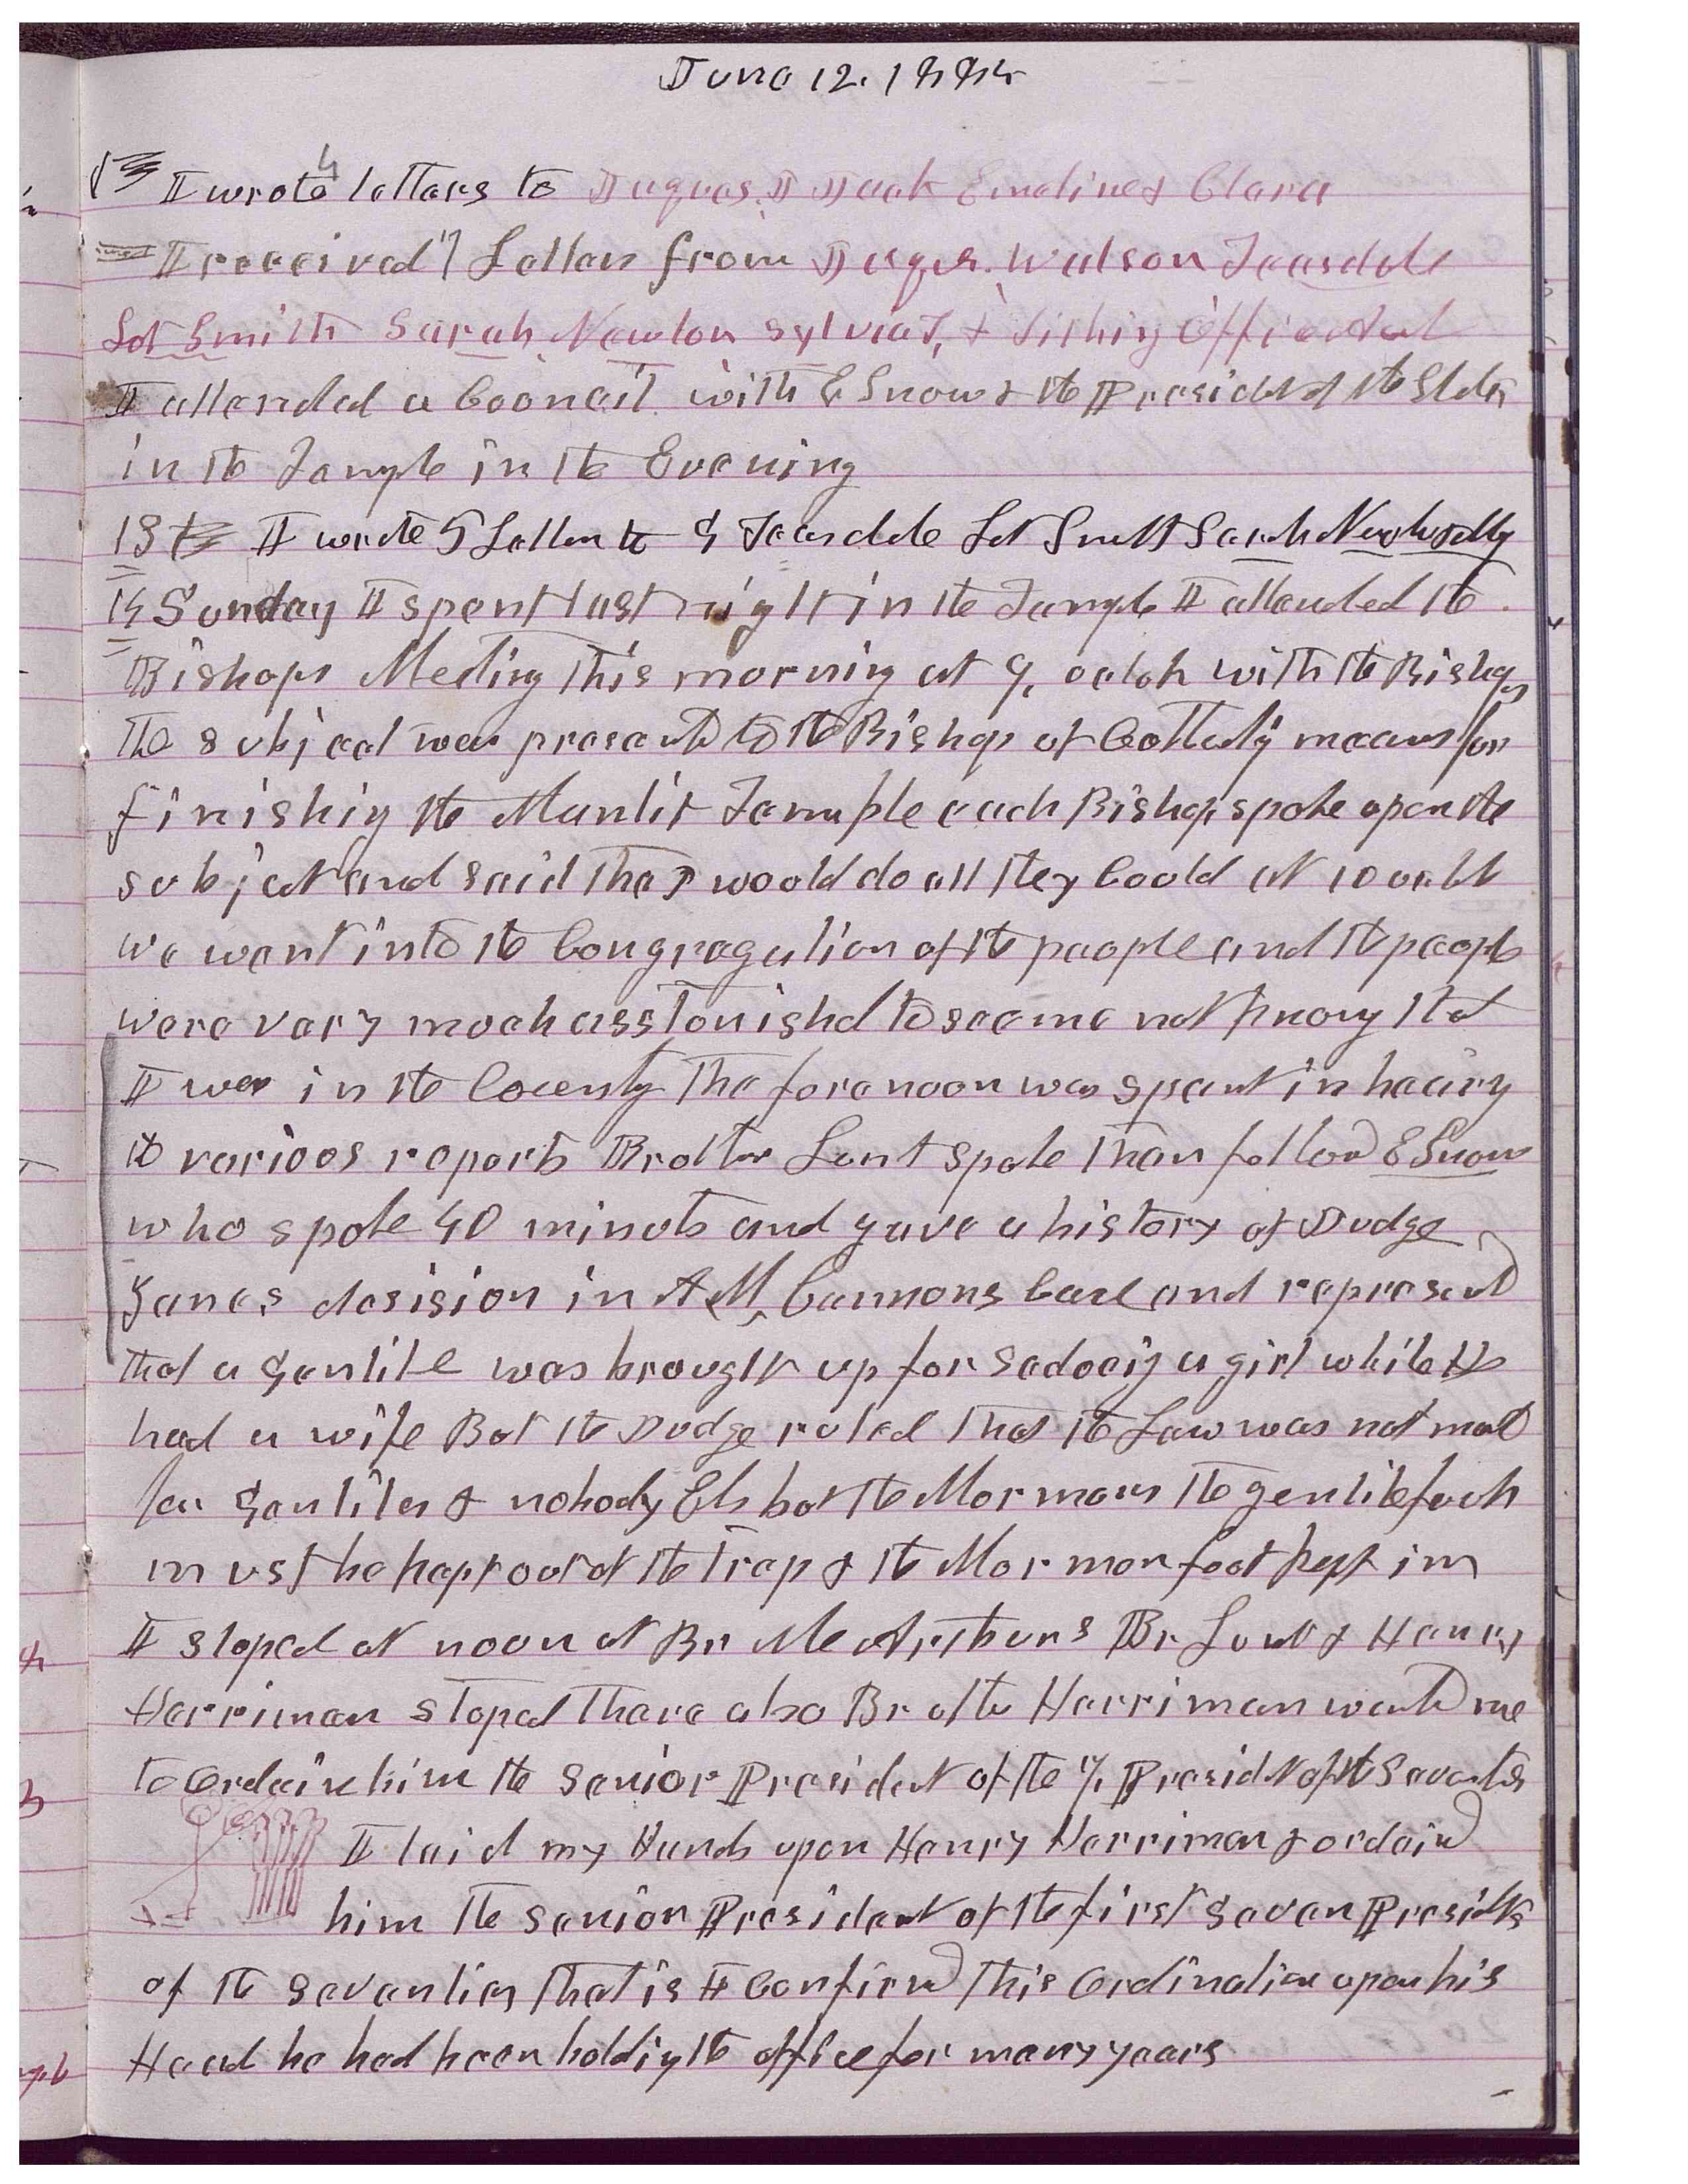 June 12, 1885
I wrote 4 letters to Jaques, Jack Emeline & Clara
I received 7 Letters from Jaques. Watson Teasdale
Lot Smith Sarah Newton Sylvia T, & Fishing
I attended a Counceil with E Snow & the Presidet of the Stake
in the Temple in the Evening
13 I wrote 5 Letters to G Teasdale Lot Smith Sarah
14 Sunday I spent last night in the Temple I attended the
Bishops Meeting this morning at 9, oclok with the Bishops
The subject was presentd to the Bishops of Colletig means for
finishing the Manti Temple each Bishop spoke upon the
subject and said they would do all they Could at 10 oclok
we went into the Congregation of the people and the people
were very much asstonished to see me not knowing that
I was in the County The forenoon was spent in hearing
the various reports Brother Lunt spoke then followd E Snow
who spoke 40 minuts and gave a history of Judge
Zanes desision in A M, Cannons Case and represented
that a Gentile was brought up for seducig a girl while He
had a wife But the Judge ruled that the Law was not mad
for Gentiles & nobody Els but the Mormons the gentile foot
must be kept out of the trap & the Mormon foot kept in
I stoped at noon at Br McArthurs Br Lunt & Henry
Herriman stoped there also Brother Herriman wantd me
to ordain him the senior President of the 7, Presidet of the Seventies
I laid my Hands upon Henry Herriman & ordaind
him the senior President of the first seven Presidets
of the seventies that is I Confirmd this ordination upon his
Head he had been holding the office for many years